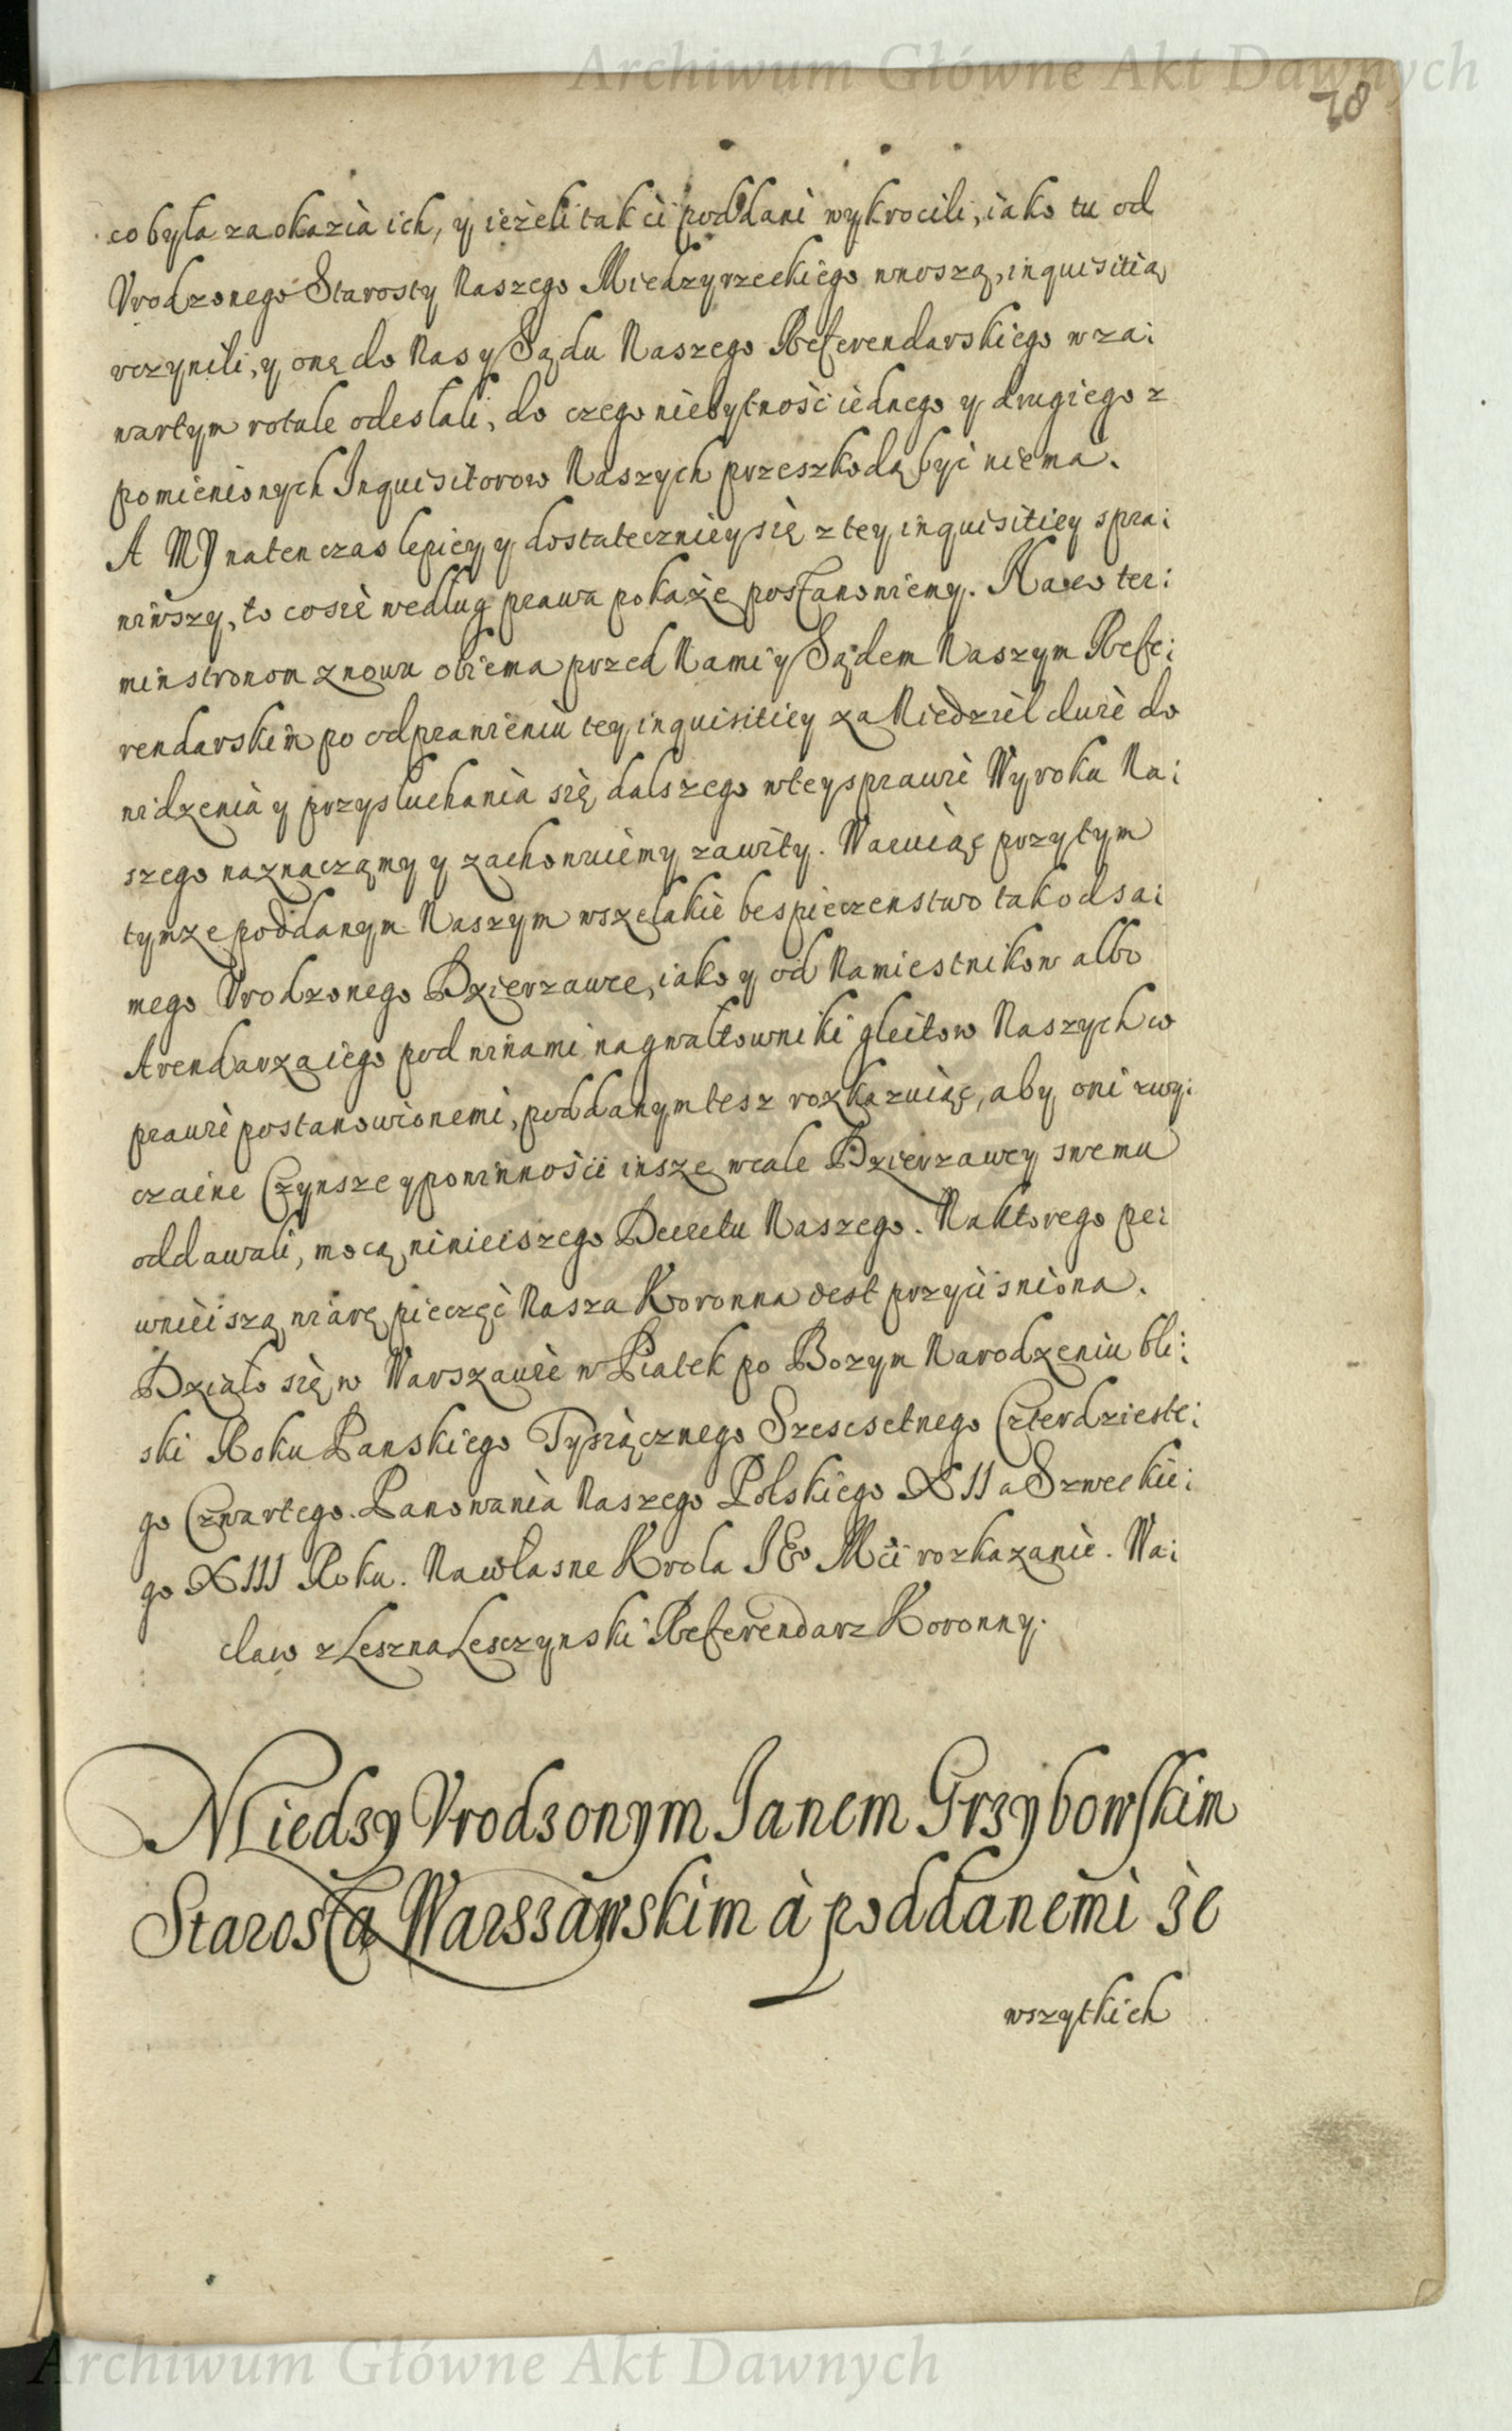 Archiwum Główne Akt Dawnych
78
co była za okazia ich, y ieżeli tak ci poddani wykrocili, iako tu od
Vrodzonego Starosty Naszego Miedzyrzeckiego wnoszą, inquisitią
vczynili, y onę do Nas y Sądu Naszego Referendarskiego w za:
wartym rotule odesłali, do czego niebytność iednego y drugiego z
pomienionych Inquisitorow Naszych przeszkodą być niema.
A MY naten czas lepiey y dostateczniey się z tey inquisitiey spra:
wiwszy, to cosię według prawa pokaże postanowiemy. Na co ter:
min stronom znowu obiema przed Nami y Sądem Naszym Refe:
rendarskim po odprawieniu tey inquisitiey za Niedziel dwie do
widzenia y przysłuchania się dalszego w tey sprawie Wyroku Na:
szego naznaczamy y zachowuiemy zawity. Waruiąc przytym
tymze poddanym Naszym wszelakie bespieczenstwo tak od sa:
mego Vrodzonego Dzierzawce, iako y od Namiestnikow albo
Arendarza iego pod winami na gwałtowniki gleitow Naszych w
prawie postanowionemi, poddanym tesz rozkazuiąc, aby oni zwy:
czaine Czynsze y powinności insze wcale Dzierzawcy swemu
oddawali, mocą ninieiszego Decretu Naszego. Na ktorego pe:
wnieiszą wiarę pieczęć Nasza Koronna iest przyciśniona.
Działo się w Warszawie w Piatek po Bozym Narodzeniu bli:
ski Roku Panskiego Tysiącznego Szescsetnego Czterdzieste:
go Czwartego. Panowania Naszego Polskiego XII a Szweckie:
go XIII Roku. Na własne Krola IEo Mći rozkazanie. Wa:
cław z Leszna Lesczynski Referendarz Koronny.
Miedzy Vrodzonym Janem Grzybowskim
Starostą Warszawskim à poddanemi ze
wszytkich
Archiwum Główne Akt Dawnych